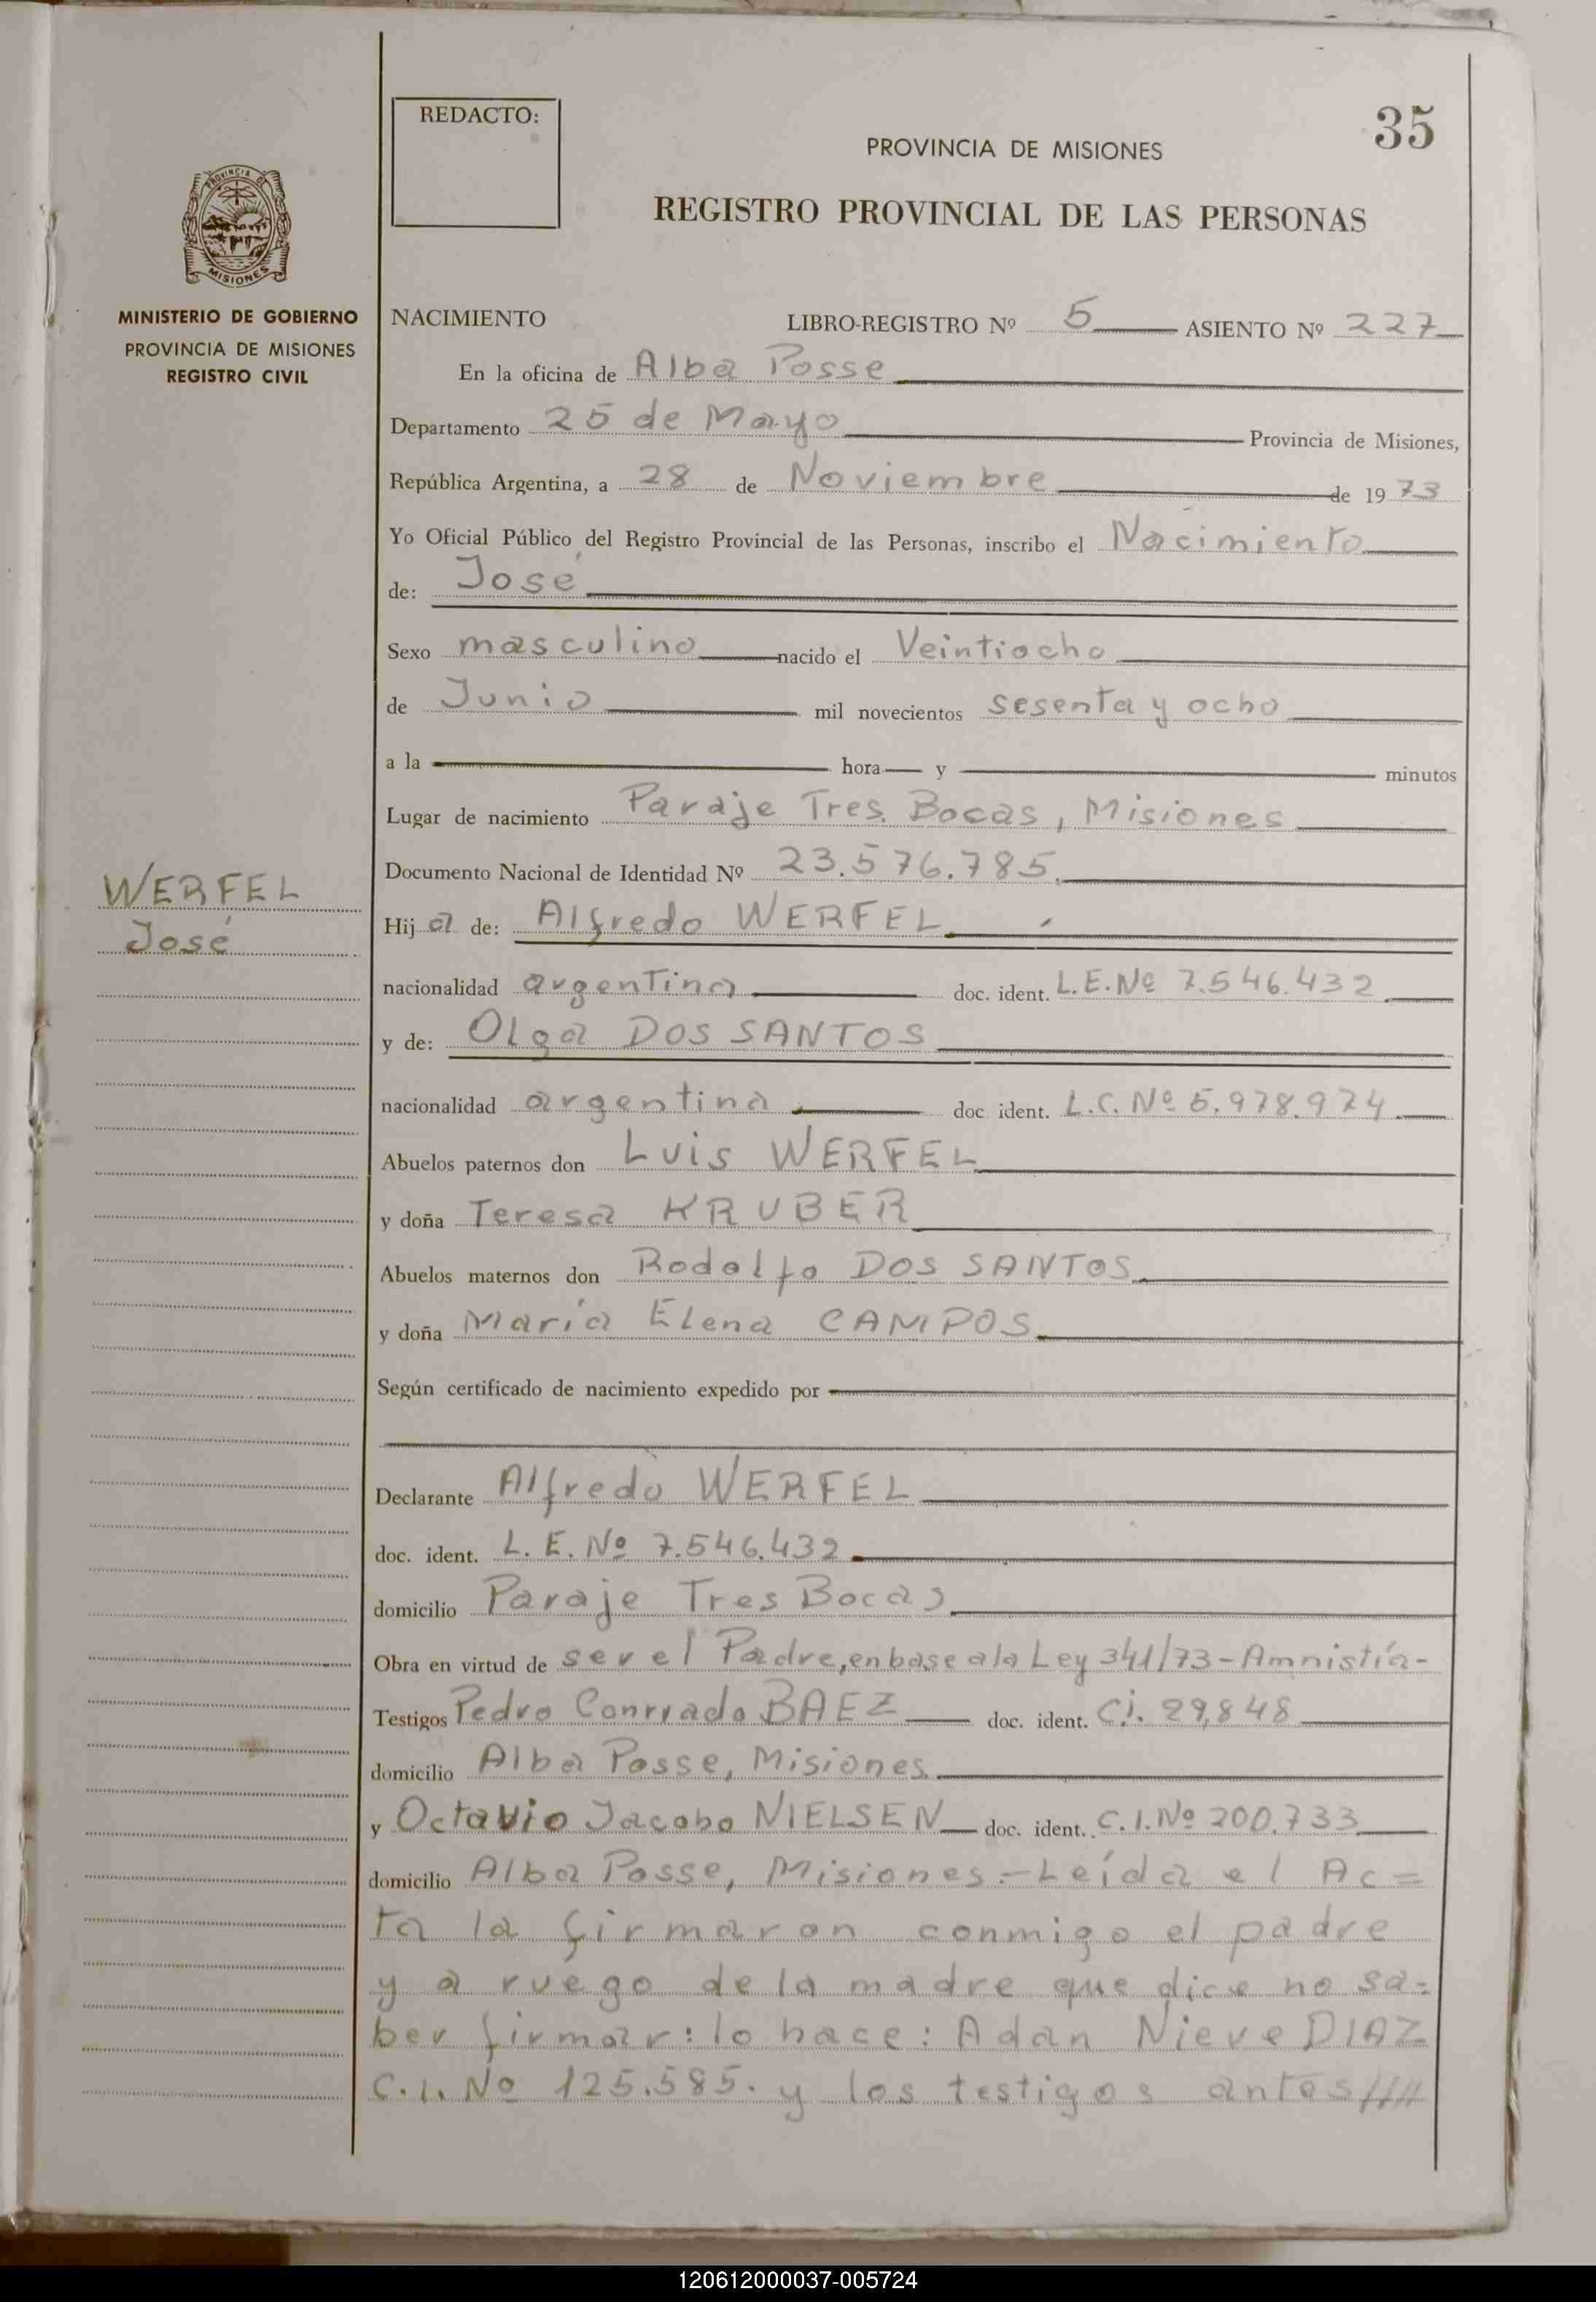 REDACTO:
35
PROVINCIA DE MISIONES
REGISTRO PROVINCIAL DE LAS PERSONAS
PROVINCIA DE
MISIONES
MINISTERIO DE GOBIERNO
PROVINCIA DE MISIONES
REGISTRO CIVIL
NACIMIENTO LIBRO-REGISTRO Nº 5 ASIENTO Nº 227
En la oficina de Alba Posse
Departamento 25 de Mayo Provincia de Misiones,
República Argentina, a 28 de Noviembre de 1973
Yo Oficial Público del Registro Provincial de las Personas, inscribo el Nacimiento
de: José
Sexo masculino nacido el Veintiocho
de Junio mil novecientos sesenta y ocho
a la hora y minutos
Lugar de nacimiento Paraje Tres Bocas, Misiones
Documento Nacional de Identidad Nº 23.576.785.
WERFEL
José
Hij o de: Alfredo WERFEL
nacionalidad argentina doc. ident. L.E.Nº 7.546.432
y de: Olga DOS SANTOS
nacionalidad argentina doc ident. L.C. Nº 5.978.974
Abuelos paternos don Luis WERFEL
y doña Teresa KRUBER
Abuelos maternos don Rodolfo DOS SANTOS
y doña María Elena CAMPOS
Según certificado de nacimiento expedido por
Declarante Alfredo WERFEL
doc. ident. L. E. Nº 7.546.432
domicilio Paraje Tres Bocas
Obra en virtud de ser el Padre, en base a la Ley 341/73 - Amnistía-
Testigos Pedro Conrrado BAEZ doc. ident. C.i. 29.848
domicilio Alba Posse, Misiones
y Octavio Jacobo NIELSEN doc. ident. C.I.Nº 200.733
domicilio Alba Posse, Misiones.-Leída el Ac=
ta la firmaron conmigo el padre
y a ruego de la madre que dice no sa=
ber firmar: lo hace: Adan Nieve DIAZ
C.I. Nº 125.585. y los testigos antes////
120612000037-005724